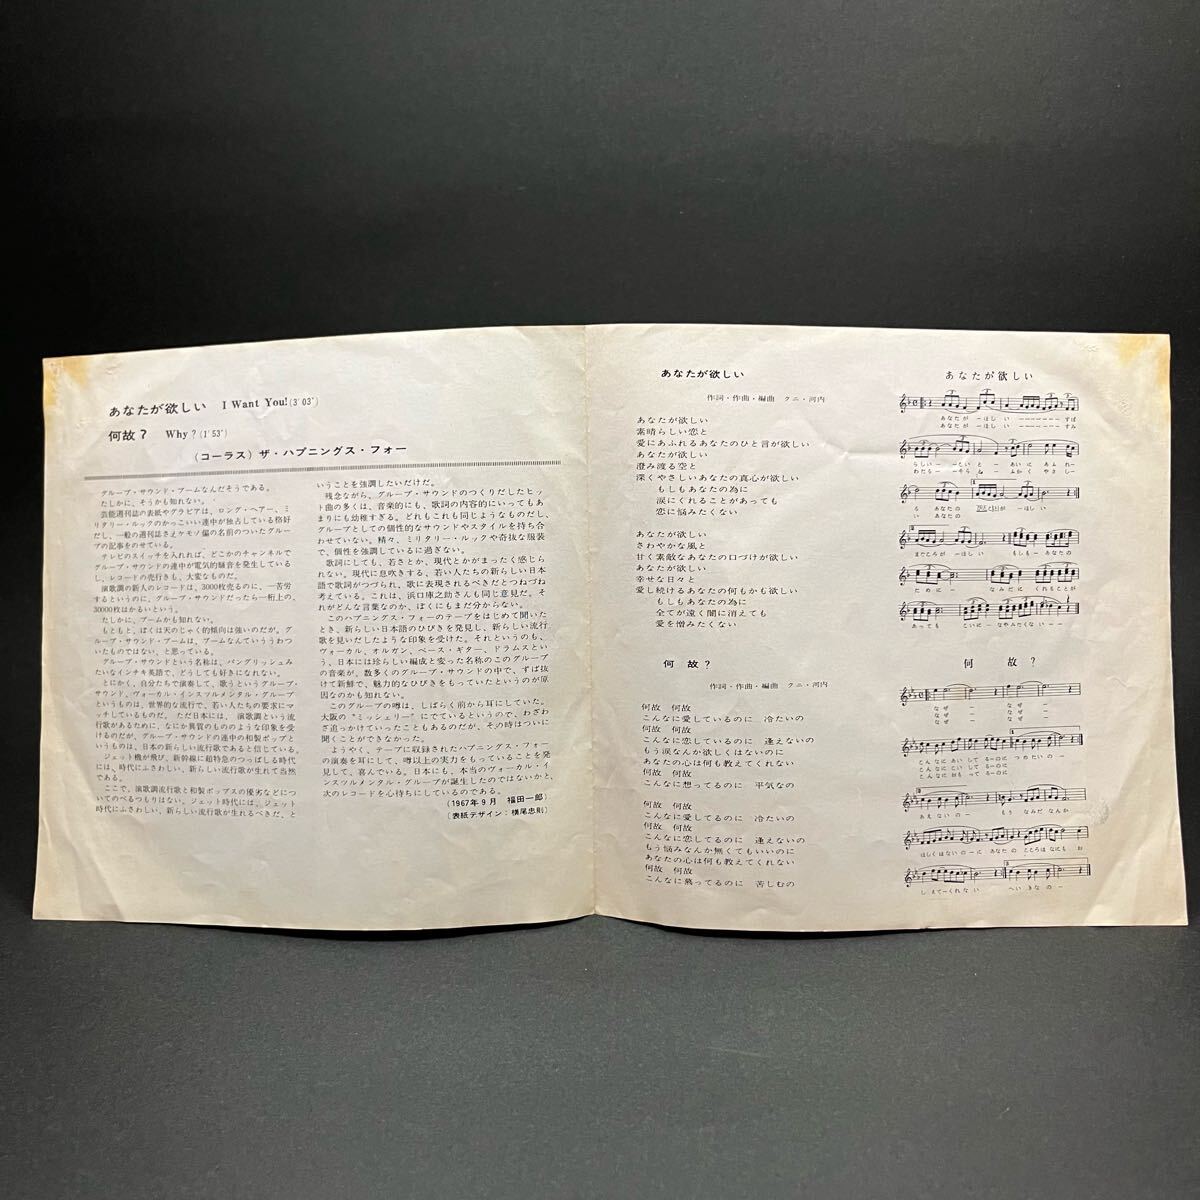 あなたが欲しい I Want You!(3'03")
何故？ Why？(1'53")
（コーラス）ザ・ハプニングス・フォー
グループ・サウンド・ブームなんだそうである。
たしかに、そうかも知れない。
芸能週刊誌の表紙やグラビアは、ロング・ヘアー、ミ
リタリー・ルックのかっこいい連中が独占している格好
だし、一般の週刊誌さえケモノ偏の名前のついたグルー
プの記事をのせている。
テレビのスイッチを入れれば、どこかのチャンネルで
グループ・サウンドの連中が電気的騒音を発生している
し、レコードの売行きも、大変なものだ。
演歌調の新人のレコードは、3000枚売るのに、一苦労
するというのに、グループ・サウンドだったら一桁上の、
30000枚はかるいという。
たしかに、ブームかも知れない。
もともと、ぼくは天のじゃく的傾向は強いのだが、グ
ループ・サウンド・ブームは、ブームなんていううわつ
いたものではない、と思っている。
グループ・サウンドという名称は、パングリッシュみ
たいなインチキ英語で、どうしても好きになれない。
とにかく、自分たちで演奏して、歌うというグループ・
サウンド、ヴォーカル・インスツルメンタル・グループ
というものは、世界的な流行で、若い人たちの要求にマ
ッチしているものだ。ただ日本には、演歌調という流
行歌があるために、なにか異質のもののような印象を受
けるのだが、グループ・サウンドの連中の和製ポップと
いうものは、日本の新らしい流行歌であると信じている。
ジェット機が飛び、新幹線に超特急のつっぱしる時代
には、時代にふさわしい、新らしい流行歌が生れて当然
である。
ここで、演歌調流行歌と和製ポップスの優劣などにつ
いてのべるつもりはない。ジェット時代には、ジェット
時代にふさわしい、新らしい流行歌が生れるべきだ、と
いうことを強調したいだけだ。
残念ながら、グループ・サウンドのつくりだしたヒッ
ト曲の多くは、音楽的にも、歌詞の内容的にいってもあ
まりにも幼稚すぎる。どれもこれも同じようなものだし、
グループとしての個性的なサウンドやスタイルを持ち合
わせていない。精々、ミリタリー・ルックや奇抜な服装
で、個性を強調しているに過ぎない。
歌詞にしても、若さとか、現代とかがまったく感じら
れない。現代に息吹きする、若い人たちの新らしい日本
語で歌詞がつづられ、歌に表現されるべきだとつねづね
考えている。これは、浜口庫之助さんも同じ意見だ。そ
れがどんな言葉なのか、ぼくにもまだ分からない。
このハプニングス・フォーのテープをはじめて聞いた
とき、新らしい日本語のひびきを発見し、新らしい流行
歌を見いだしたような印象を受けた。それというのも、
ヴォーカル、オルガン、ベース・ギター、ドラムスとい
う、日本には珍らしい編成と変った名称のこのグループ
の音楽が、数多くのグループ・サウンドの中で、ずば抜
けて新鮮で、魅力的なひびきをもっていたというのが原
因なのかも知れない。
このグループの噂は、しばらく前から耳にしていた。
大阪の"ミッシェリー"にでているというので、わざわ
ざ追っかけていったこともあるのだが、その時はついに
聞くことができなかった。
ようやく、テープに収録されたハプニングス・フォー
の演奏を耳にして、噂以上の実力をもっていることを発
見して、喜んでいる。日本にも、本当のヴォーカル・イ
ンスツルメンタル・グループが誕生したのではないかと、
次のレコードを心待ちにしているのである。
（1967年9月 福田一郎）
〔表紙デザイン：横尾忠則〕
あなたが欲しい
作詞・作曲・編曲 クニ・河内
あなたが欲しい
素晴らしい恋と
愛にあふれるあなたのひと言が欲しい
あなたが欲しい
澄み渡る空と
深くやさしいあなたの真心が欲しい
もしもあなたの為に
涙にくれることがあっても
恋に悩みたくない
あなたが欲しい
さわやかな風と
甘く素敵なあなたの口づけが欲しい
あなたが欲しい
幸せな日々と
愛し続けるあなたの何もかも欲しい
もしもあなたの為に
全てが遠く闇に消えても
愛を憎みたくない
何故？
作詞・作曲・編曲 クニ・河内
何故 何故
こんなに愛しているのに 冷たいの
何故 何故
こんなに恋しているのに 逢えないの
もう涙なんか欲しくはないのに
あなたの心は何も教えてくれない
何故 何故
こんなに想ってるのに 平気なの
何故 何故
こんなに愛してるのに 冷たいの
何故 何故
こんなに恋してるのに 逢えないの
もう悩みなんか無くてもいいのに
あなたの心は何も教えてくれない
何故 何故
こんなに慕ってるのに 苦しむの
あなたが欲しい
あなたが ーほしい ーーーーーーーすば
あなたが ーほしい ーーーーーーーすみ
らしいー ーこいと ー あいに あふれー
わたるー ーそらと ー ふかく やさしー
る あなたの ひとことが ーほしい
い あなたの
まごころが ーほしい もしもー あなたの
ためにー ー なみだに くれることが
あっても こいにー なやみたくないー ー
何故？
なぜ ー なぜ ー
なぜ ー なぜ ー
なぜ ー なぜ ー
こんなに あいして るーのに つめたいのー
こんなに こいして るーのに
こんなに おもって るーのに
あえないのー もう なみだ なんか
ほしくはないのーに あなたの こころは なにも お
しえてーくれない へいきなのー